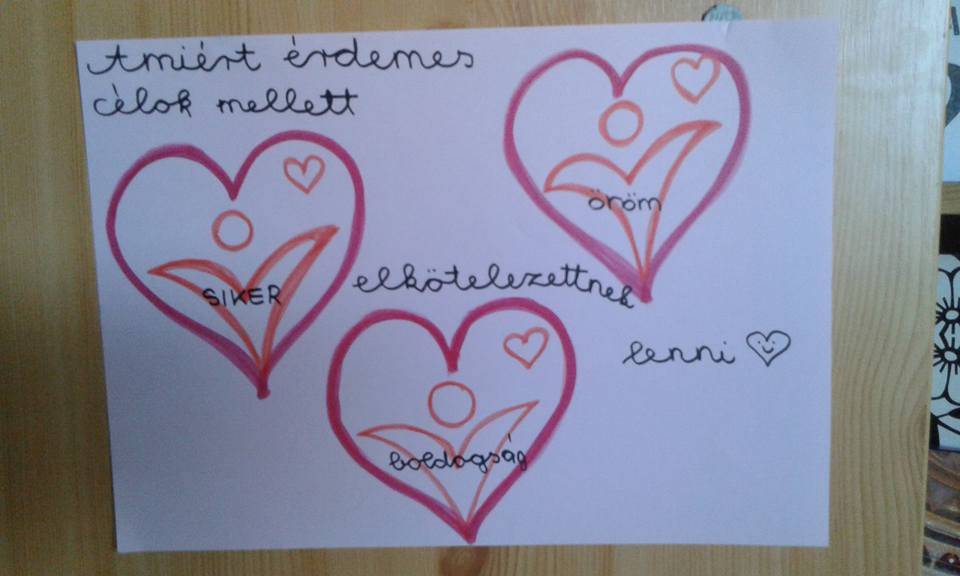 Amiért érdemes
célok mellett
SIKER
öröm
elkötelezettnek
boldogság
lenni